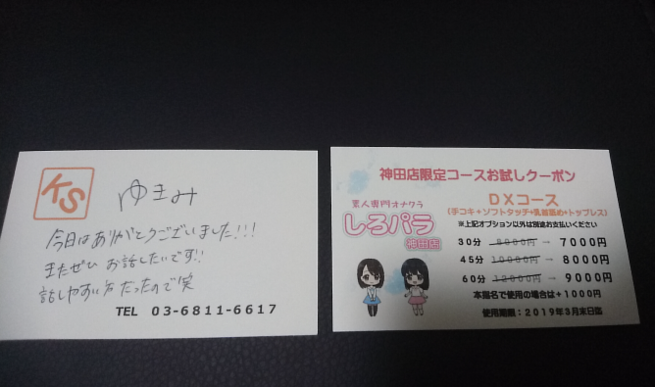 KS
ゆきみ
今日はありがとうございました!!!
またぜひ お話したいです!!
話しやすい方だったので笑
TEL 03-6811-6617
神田店限定コースお試しクーポン
素人専門オナクラ
しろパラ
神田店
DXコース
(手コキ+ソフトタッチ+乳首舐め+トップレス)
※上記オプション以外は別途お支払いください
30分 8000円 → 7000円
45分 10000円 → 8000円
60分 12000円 → 9000円
本指名で使用の場合は+1000円
使用期限:2019年3月末日迄